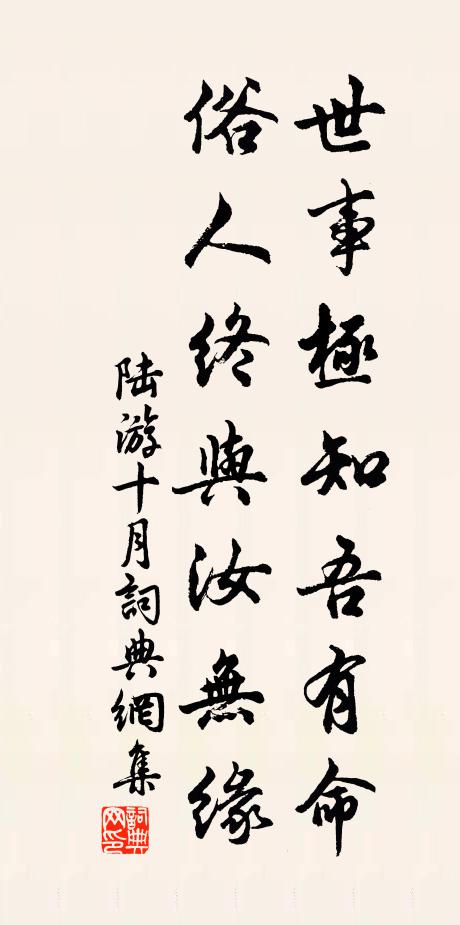 世事極知吾有命
俗人終與汝無緣
陆游十月詞典網集
詞典网印